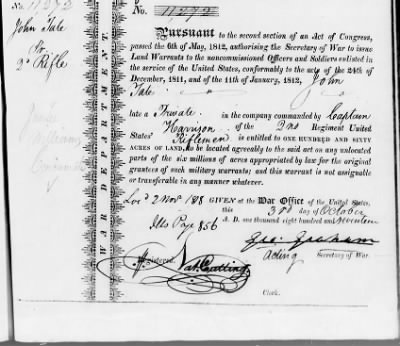 No. 11272
No. 11272
John Tate
2d Rifle
WAR DEPARTMENT.
Pursuant to the second section of an Act of Congress,
passed the 6th of May, 1812, authorising the Secretary of War to issue
Land Warrants to the noncommissioned Officers and Soldiers enlisted in
the service of the United States, conformably to the acts of the 24th of
December, 1811, and of the 11th of January, 1812, John
Tate
late a Private in the company commanded by Captain
Harrison of the 2nd Regiment United
States' Riflemen is entitled to ONE HUNDRED AND SIXTY
ACRES OF LAND, to be located agreeably to the said act on any unlocated
parts of the six millions of acres appropriated by law for the original
grantees of such military warrants; and this warrant is not assignable
or transferable in any manner whatever.
Loc'd 2 Nov 1818
GIVEN at the War Office of the United States,
this 3rd day of October
A. D. one thousand eight hundred and seventeen
Page 856
Geo: Graham
Acting Secretary of War.
Registered.
Nat. Cutting
Clerk.